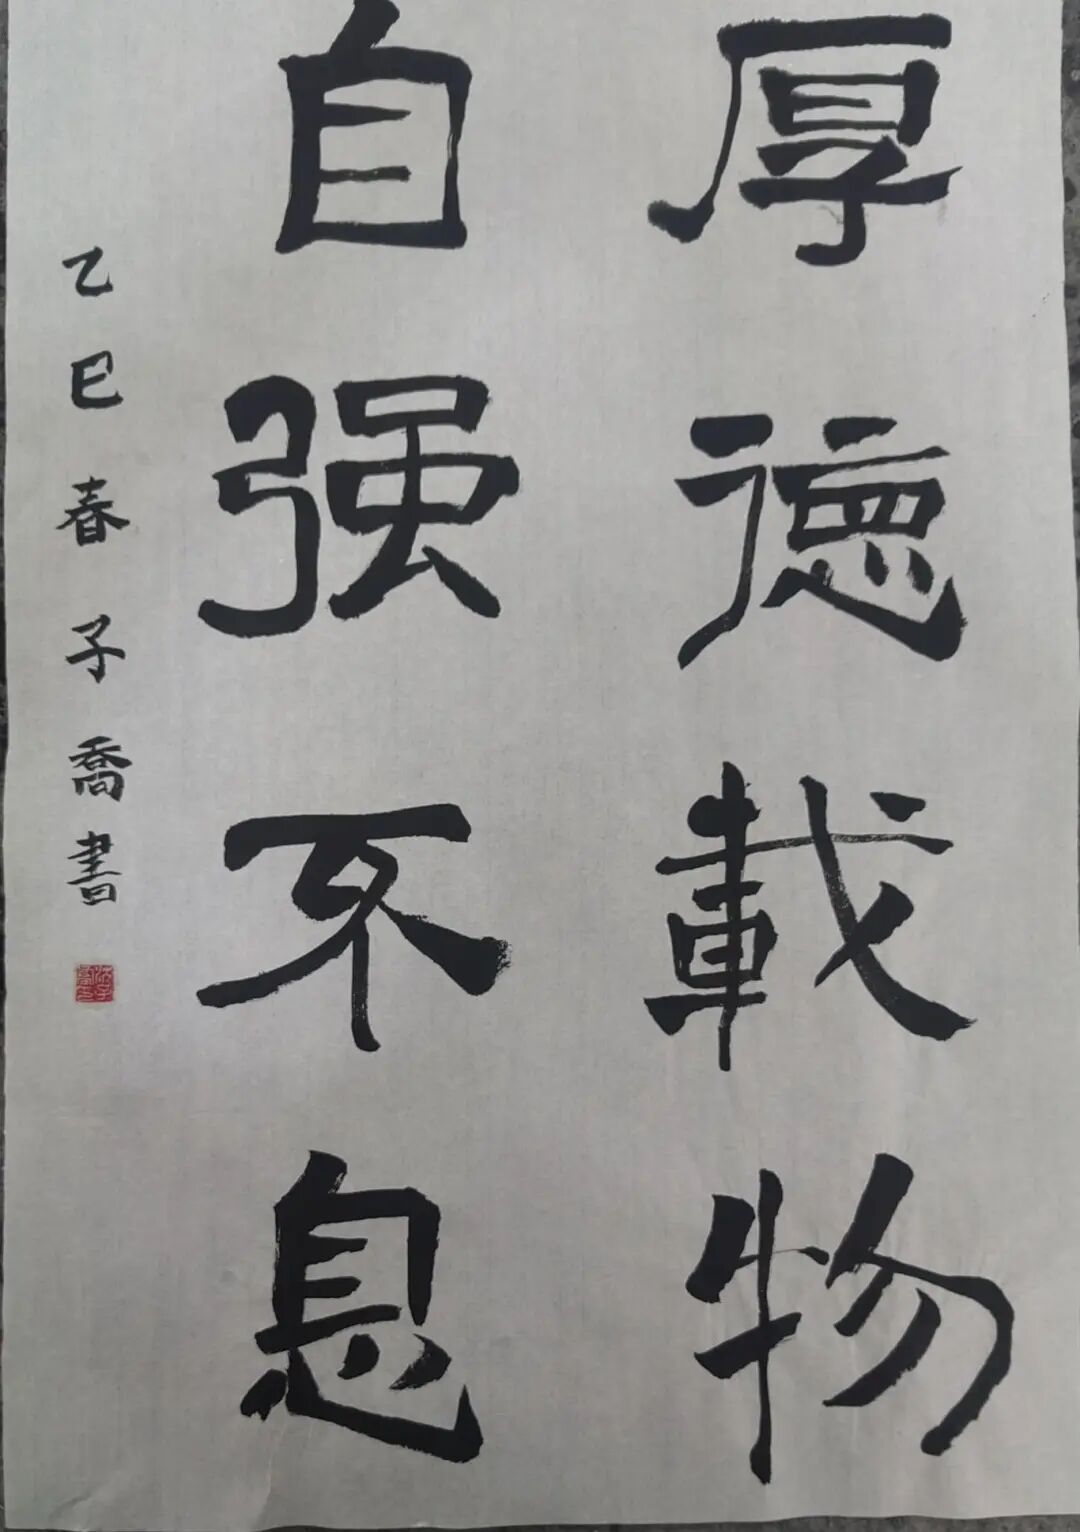 厚德載物
自强不息
乙巳春子喬書